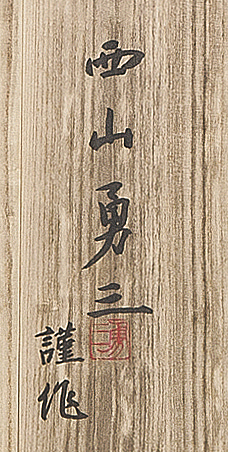 西山勇三
謹作